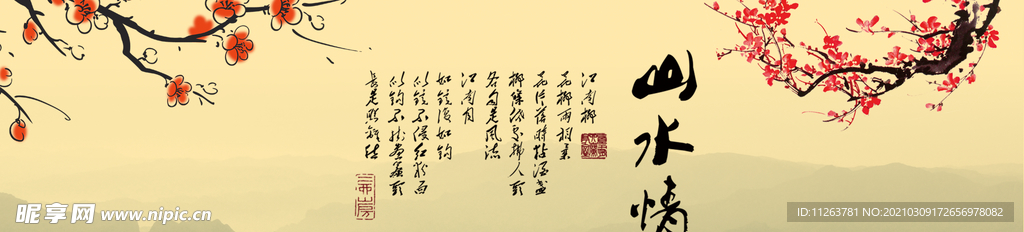 山水情
江南柳
花柳两相柔
花片落时粘酒盏
柳条低处拂人头
各自是风流
江南月
如镜复如钩
似镜不侵红粉面
似钩不挂画帘头
长是照离愁
昵享网 www.nipic.cn
ID:11263781 NO:20210309172656978082